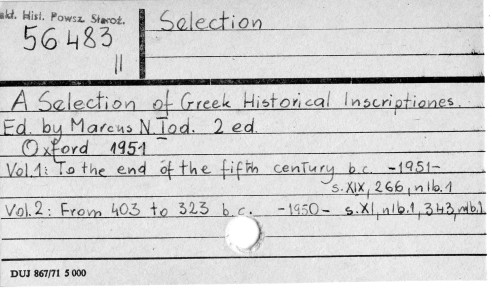 akt. Hist. Powsz. Staroż.
56483
II
Selection
A Selection of Greek Historical Inscriptiones.
Ed. by Marcus N. Tod. 2 ed.
Oxford 1951
Vol.1: To the end of the fifth century b.c. -1951-
s.XIX, 266, nlb.1
Vol.2: From 403 to 323 b.c. -1950- s.XI, nlb.1, 343, nlb.1
DUJ 867/71 5 000